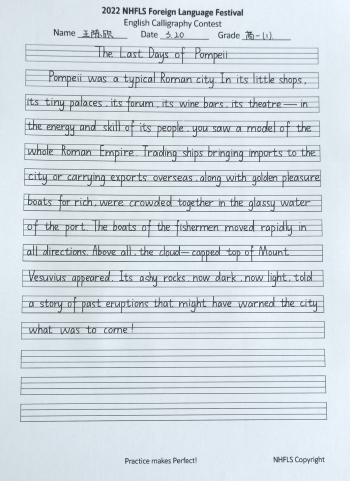 2022 NHFLS Foreign Language Festival
English Calligraphy Contest
Name 王陈欣 Date 3.20 Grade 高一(1)
The Last Days of Pompeii
Pompeii was a typical Roman city. In its little shops,
its tiny palaces, its forum, its wine bars, its theatre — in
the energy and skill of its people, you saw a model of the
whole Roman Empire. Trading ships bringing imports to the
city or carrying exports overseas, along with golden pleasure
boats for rich, were crowded together in the glassy water
of the port. The boats of the fishermen moved rapidly in
all directions. Above all, the cloud-capped top of Mount
Vesuvius appeared. Its ashy rocks, now dark, now light, told
a story of past eruptions that might have warned the city
what was to come!
Practice makes Perfect!
NHFLS Copyright